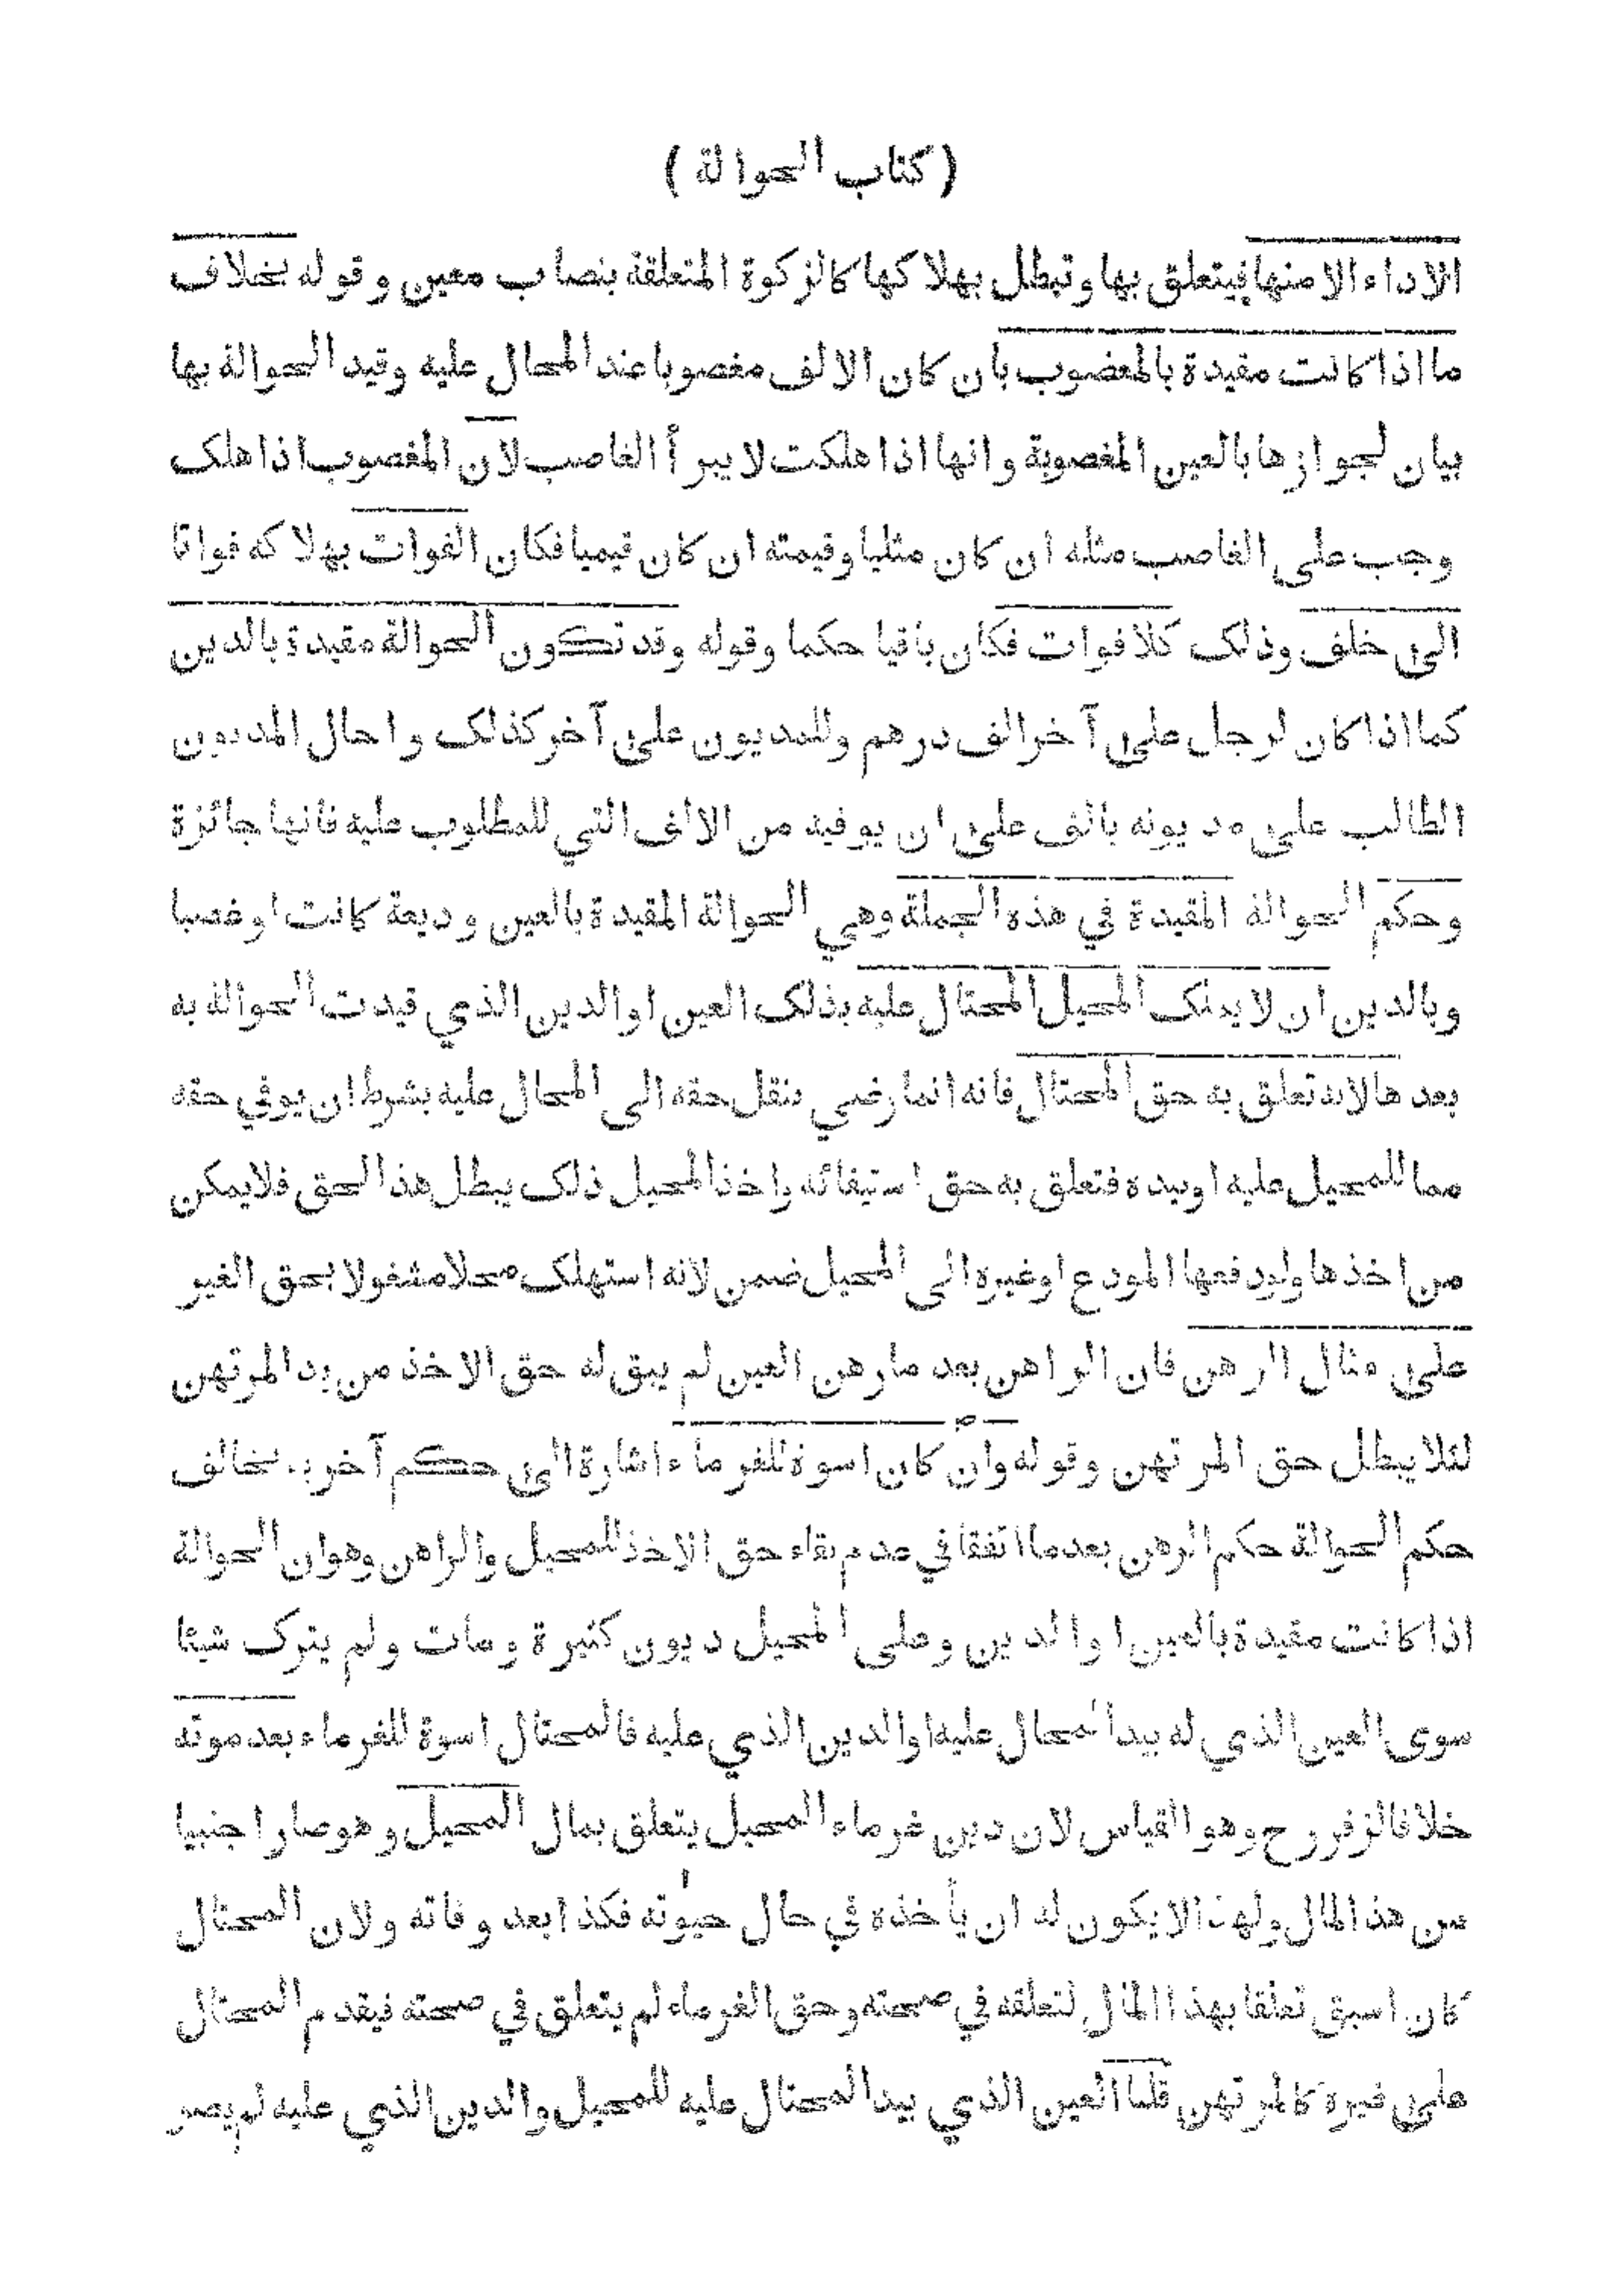 ( كتاب الحوالة )
الاداء الا منها فيتعلق بها وتبطل بهلاكها كالزكوة المتعلقة بنصاب معين وقوله بخلاف
ما اذا كانت مقيدة بالمغضوب بان كان الالف مغصوبا عند المحال عليه وقيد الحوالة بها
بيان لجوازها بالعين المغصوبة وانها اذا هلكت لا يبرأ الغاصب لان المغصوب اذا هلك
وجب على الغاصب مثله ان كان مثليا وقيمته ان كان قيميا فكان الفوات بهلاكه فواتا
الى خلف وذلك كلا فوات فكان باقيا حكما وقوله وقد تكون الحوالة مقيدة بالدين
كما اذا كان لرجل على آخر الف درهم وللمديون على آخر كذلك واحال المديون
الطالب على مديونه بالف على ان يوفيه من الالف التي للمطلوب عليه فانها جائزة
وحكم الحوالة المقيدة في هذه الجملة وهي الحوالة المقيدة بالعين وديعة كانت او غصبا
وبالدين ان لا يملك المحيل المحتال عليه بذلك العين او الدين الذي قيدت الحوالة به
بعدها لانه تعلق به حق المحتال فانه انما رضي بنقل حقه الى المحال عليه بشرط ان يوفي حقه
مما للمحيل عليه او بيده فتعلق به حق استيفائه واخذ المحيل ذلك يبطل هذا الحق فلا يمكن
من اخذها ولو دفعها المودع او غيره الى المحيل ضمن لانه استهلك محلا مشغولا بحق الغير
على مثال الرهن فان الراهن بعد ما رهن العين لم يبق له حق الاخذ من يد المرتهن
لئلا يبطل حق المرتهن وقوله وان كان اسوة للغرماء اشارة الى حكم آخر به تخالف
حكم الحوالة حكم الرهن بعد ما اتفقا في عدم بقاء حق الاخذ للمحيل والراهن وهو ان الحوالة
اذا كانت مقيدة بالعين او الدين وعلى المحيل ديون كثيرة ومات ولم يترك شيئا
سوى العين الذي له بيد المحال عليه او الدين الذي عليه فالمحتال اسوة للغرماء بعد موته
خلافا لزفر رح وهو القياس لان دين غرماء المحيل يتعلق بمال المحيل وهو صار اجنبيا
من هذا المال ولهذا لا يكون له ان يأخذه في حال حيوته فكذا بعد وفاته ولان المحتال
كان اسبق تعلقا بهذا المال لتعلقه في صحته وحق الغرماء لم يتعلق في صحته فيقدم المحتال
على غيره كالمرتهن قلنا العين الذي بيد المحتال عليه للمحيل والدين الذي عليه لم يصر